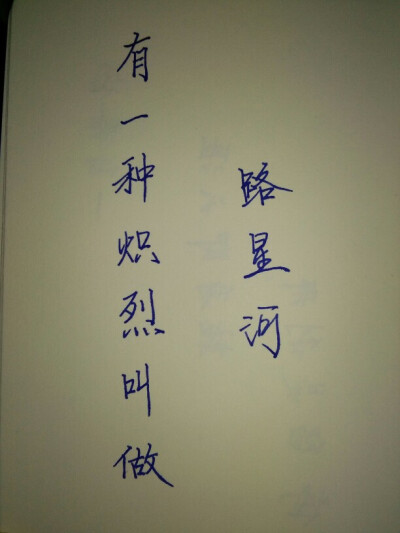 有一种炽烈叫做
路星河